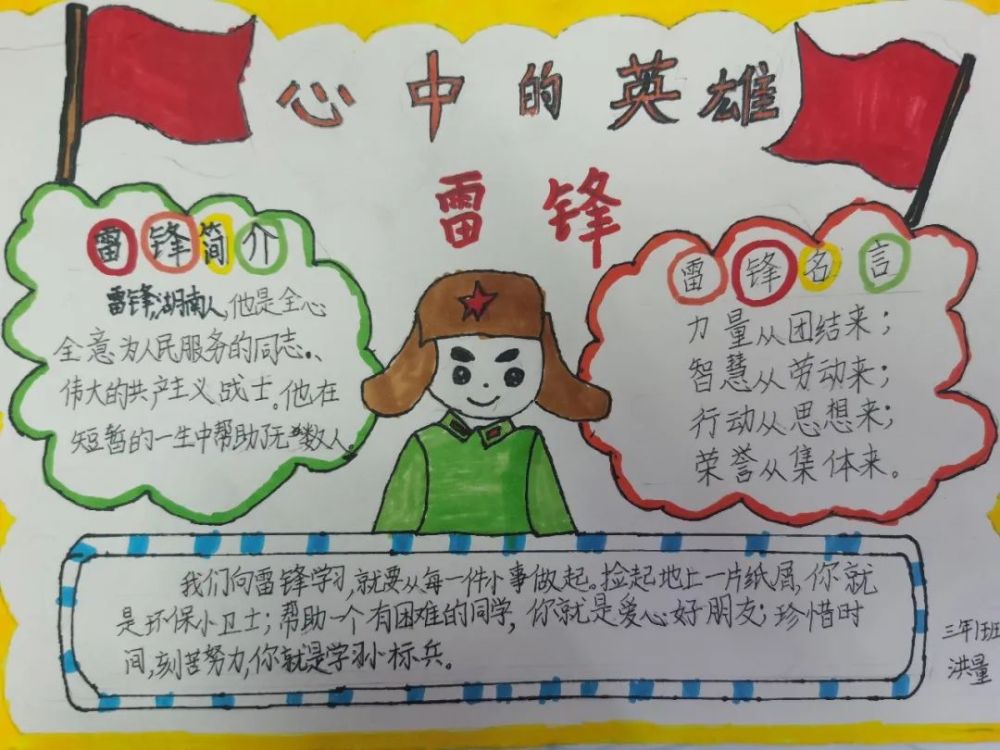 心中的英雄
雷锋
雷锋简介
雷锋,湖南人,他是全心
全意为人民服务的同志、
伟大的共产主义战士。他在
短暂的一生中帮助了无数人。
雷锋名言
力量从团结来;
智慧从劳动来;
行动从思想来;
荣誉从集体来。
我们向雷锋学习,就要从每一件小事做起。捡起地上一片纸屑,你就
是环保小卫士;帮助一个有困难的同学,你就是爱心好朋友;珍惜时
间,刻苦努力,你就是学习小标兵。
三年1班
洪量